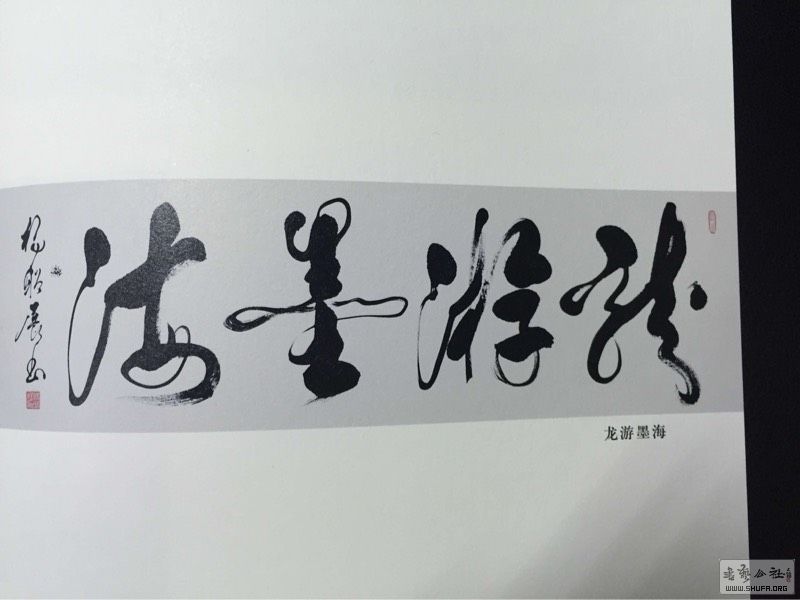 龍游墨海
龙游墨海
WWW.SHUFA.ORG